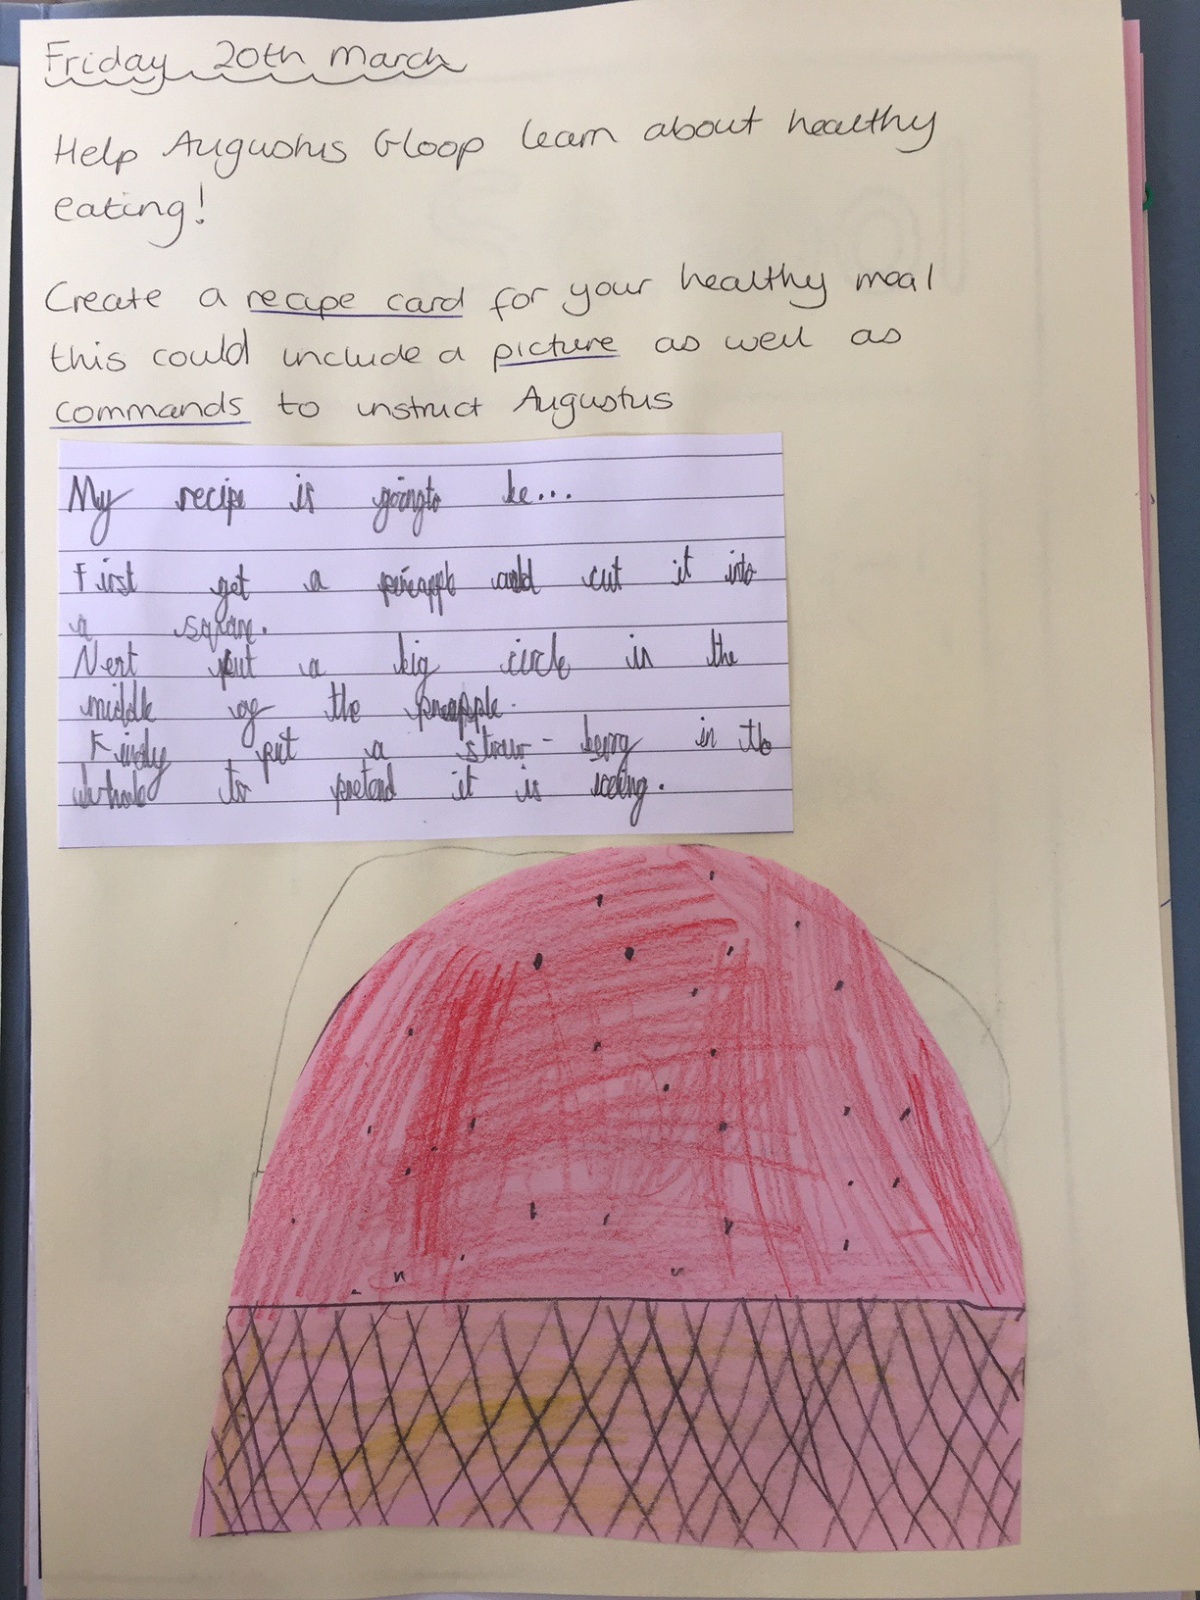 Friday 20th March
Help Augustus Gloop learn about healthy
eating!
Create a recipe card for your healthy meal
this could include a picture as well as
commands to instruct Augustus
My recipe is goingto be...
First get a pineapple and cut it into
a square.
Next put a big circle in the
middle of the pineapple.
put a straw-berry in the
to pretend it is